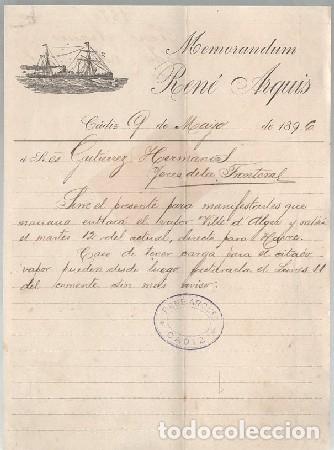 Memorandum
René Arquis
Cádiz 9 de Mayo de 1896
a Sres Gutierrez Hermanos
Jerez de la Frontera
Sirve el presente para manifestarles que
mañana entrará el vapor Ville d' Alger y saldrá
el martes 12 del actual, directo para Havre.
Caso de tener carga para el citado
vapor pueden desde luego el Lunes 11
del corriente sin mas aviso.
RENE ARQUIS
CADIZ
todocoleccion.net